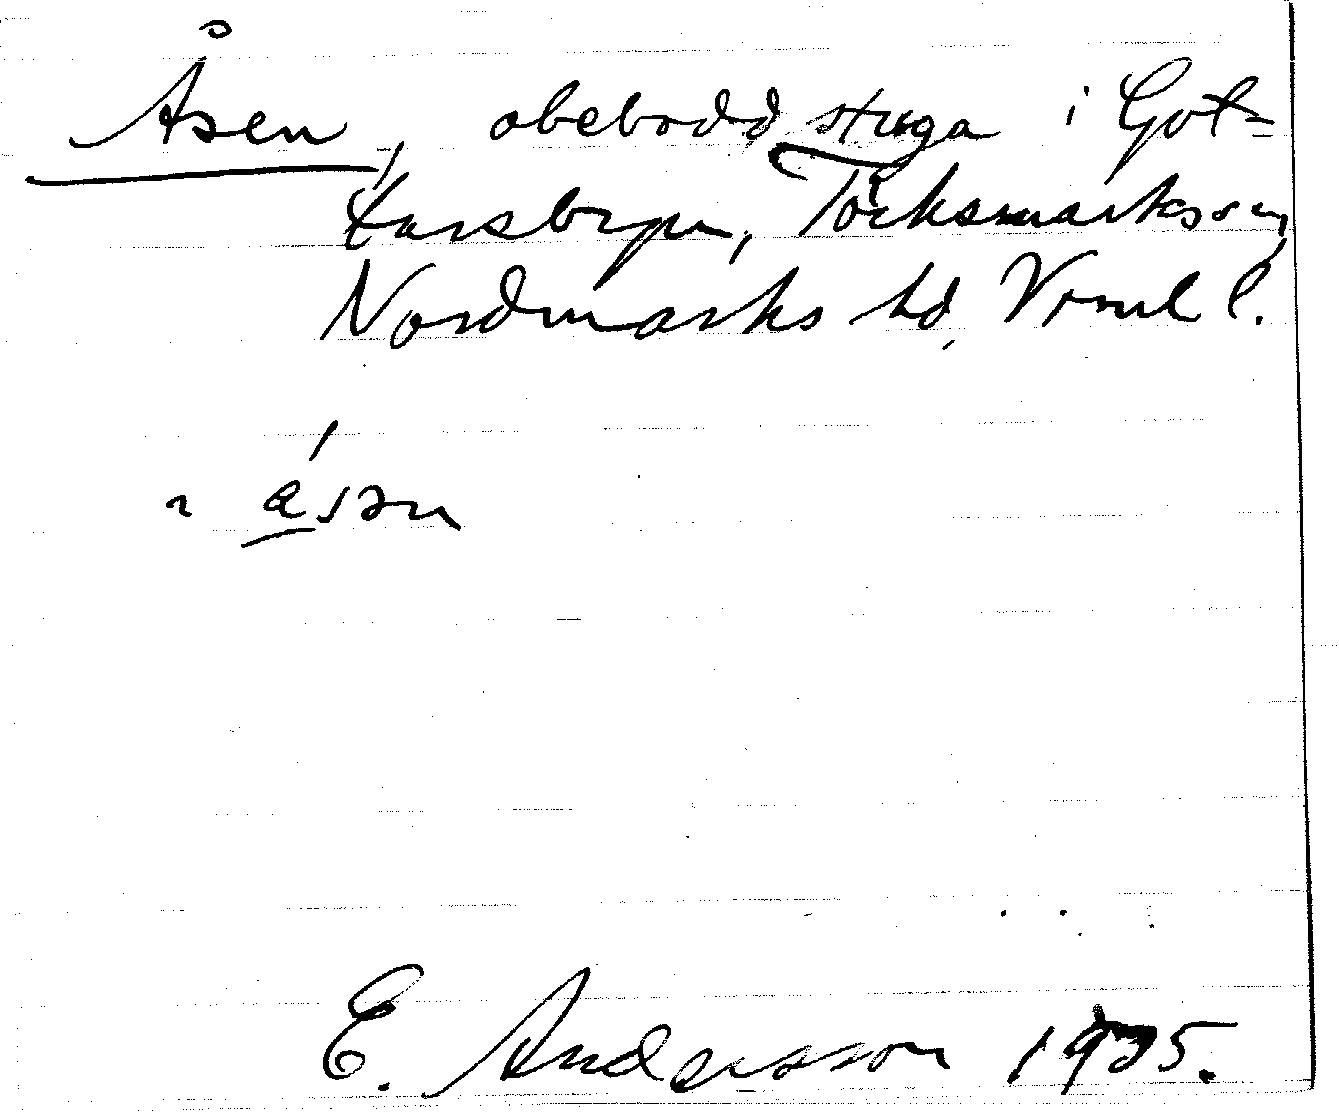 Åsen, obebodd stuga i Got-
tarsbyn, Töcksmarks sn,
Nordmarks hd, Vrml l.
ásən
E. Andersson 1935.